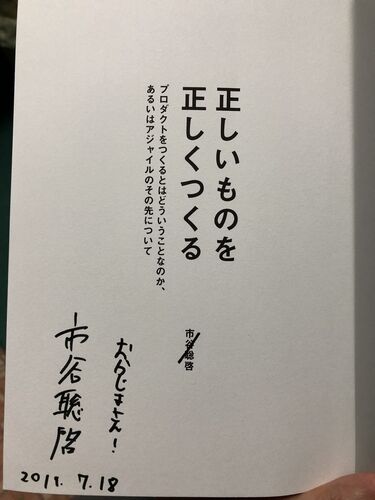 正しいものを
正しくつくる
プロダクトをつくるとはどういうことなのか、
あるいはアジャイルのその先について
市谷聡啓
市谷聡啓
7.18